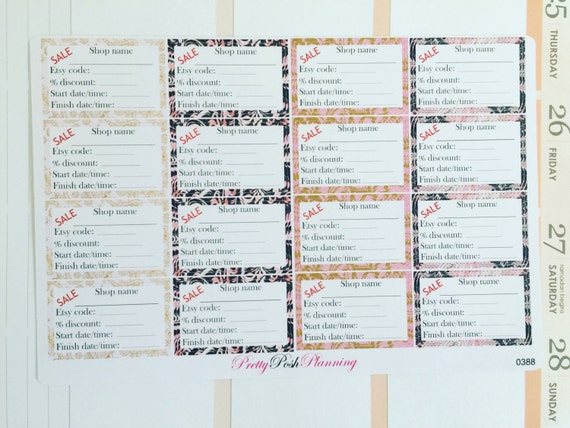 SALE Shop name
Etsy code:
% discount:
Start date/time:
Finish date/time:
SALE Shop name
Etsy code:
% discount:
Start date/time:
Finish date/time:
SALE Shop name
Etsy code:
% discount:
Start date/time:
Finish date/time:
SALE Shop name
Etsy code:
% discount:
Start date/time:
Finish date/time:
SALE Shop name
Etsy code:
% discount:
Start date/time:
Finish date/time:
SALE Shop name
Etsy code:
% discount:
Start date/time:
Finish date/time:
SALE Shop name
Etsy code:
% discount:
Start date/time:
Finish date/time:
SALE Shop name
Etsy code:
% discount:
Start date/time:
Finish date/time:
SALE Shop name
Etsy code:
% discount:
Start date/time:
Finish date/time:
SALE Shop name
Etsy code:
% discount:
Start date/time:
Finish date/time:
SALE Shop name
Etsy code:
% discount:
Start date/time:
Finish date/time:
SALE Shop name
Etsy code:
% discount:
Start date/time:
Finish date/time:
SALE Shop name
Etsy code:
% discount:
Start date/time:
Finish date/time:
SALE Shop name
Etsy code:
% discount:
Start date/time:
Finish date/time:
SALE Shop name
Etsy code:
% discount:
Start date/time:
Finish date/time:
SALE Shop name
Etsy code:
% discount:
Start date/time:
Finish date/time:
PrettyPoshPlanning
0388
25
THURSDAY
26
FRIDAY
27
ramadan begins
SATURDAY
28
SUNDAY